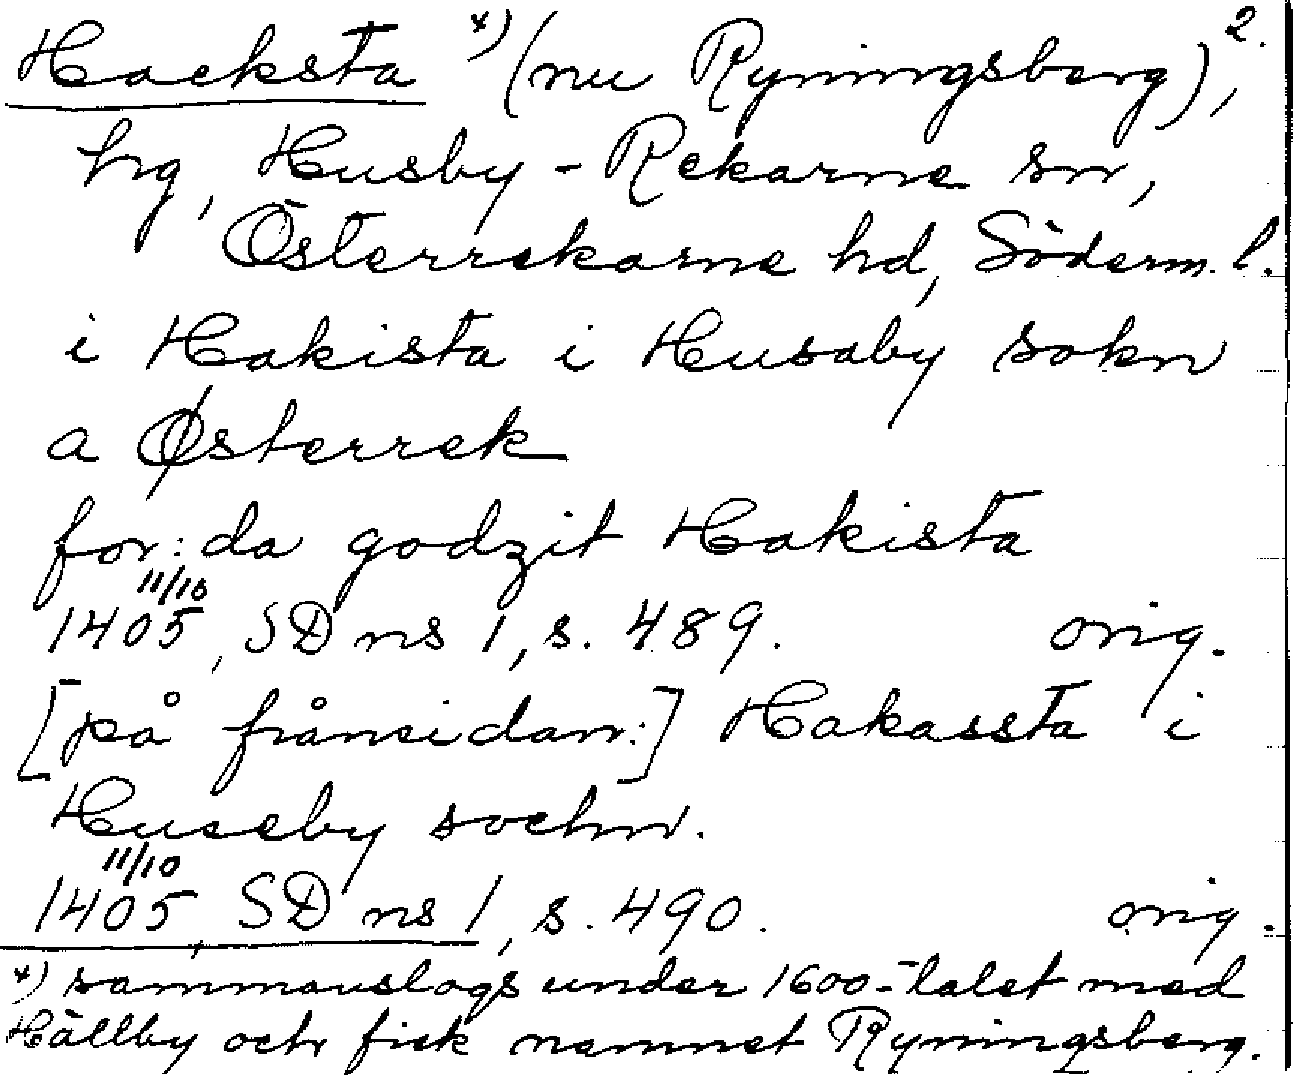 Hacksta *) (nu Ryningsberg), 2.
hg, Husby-Rekarne sn,
Österrekarne hd, Söderm. l.
i Hakista i Husaby sokn
a Østerrek
for: da godzit Hakista
1405 11/10, SD ns 1, s. 489. orig.
[på frånsidan:] Hakassta i
Huseby sochn.
1405 11/10, SD ns 1, s. 490. orig.
*) sammanslogs under 1600-talet med
Hällby och fick namnet Ryningsberg.